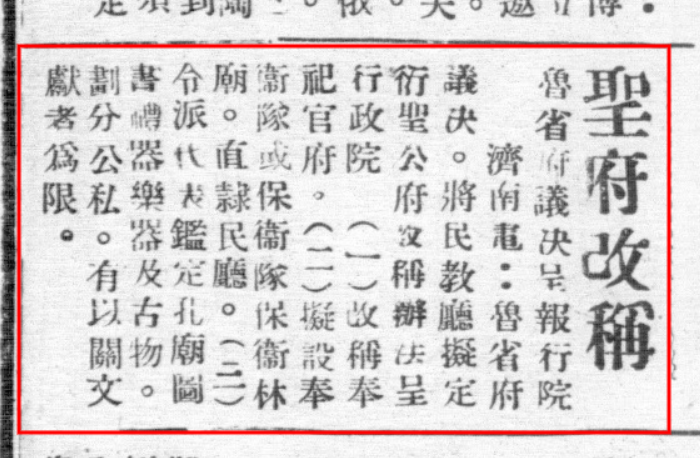 聖府改稱
魯省府議决呈報行院
濟南電：魯省府
議决。將民教廳擬定
衍聖公府改稱辦法呈
行政院（一）改稱奉
祀官府。（二）擬設奉
衞隊或保衞隊保衞林
廟。直隸民廳。（三）
令派代表鑑定孔廟圖
書禮器樂器及古物。
劃分公私。有以關文
獻者爲限。